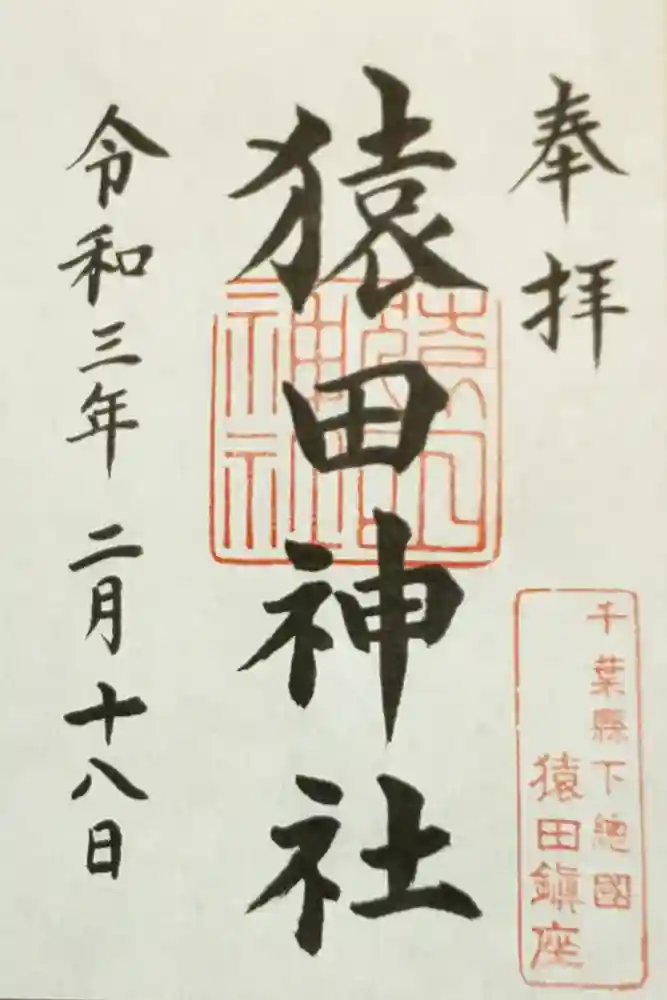 奉拝
千葉縣下總國
猿田鎭座
猿田神社
猿田神社
令和三年 二月十八日